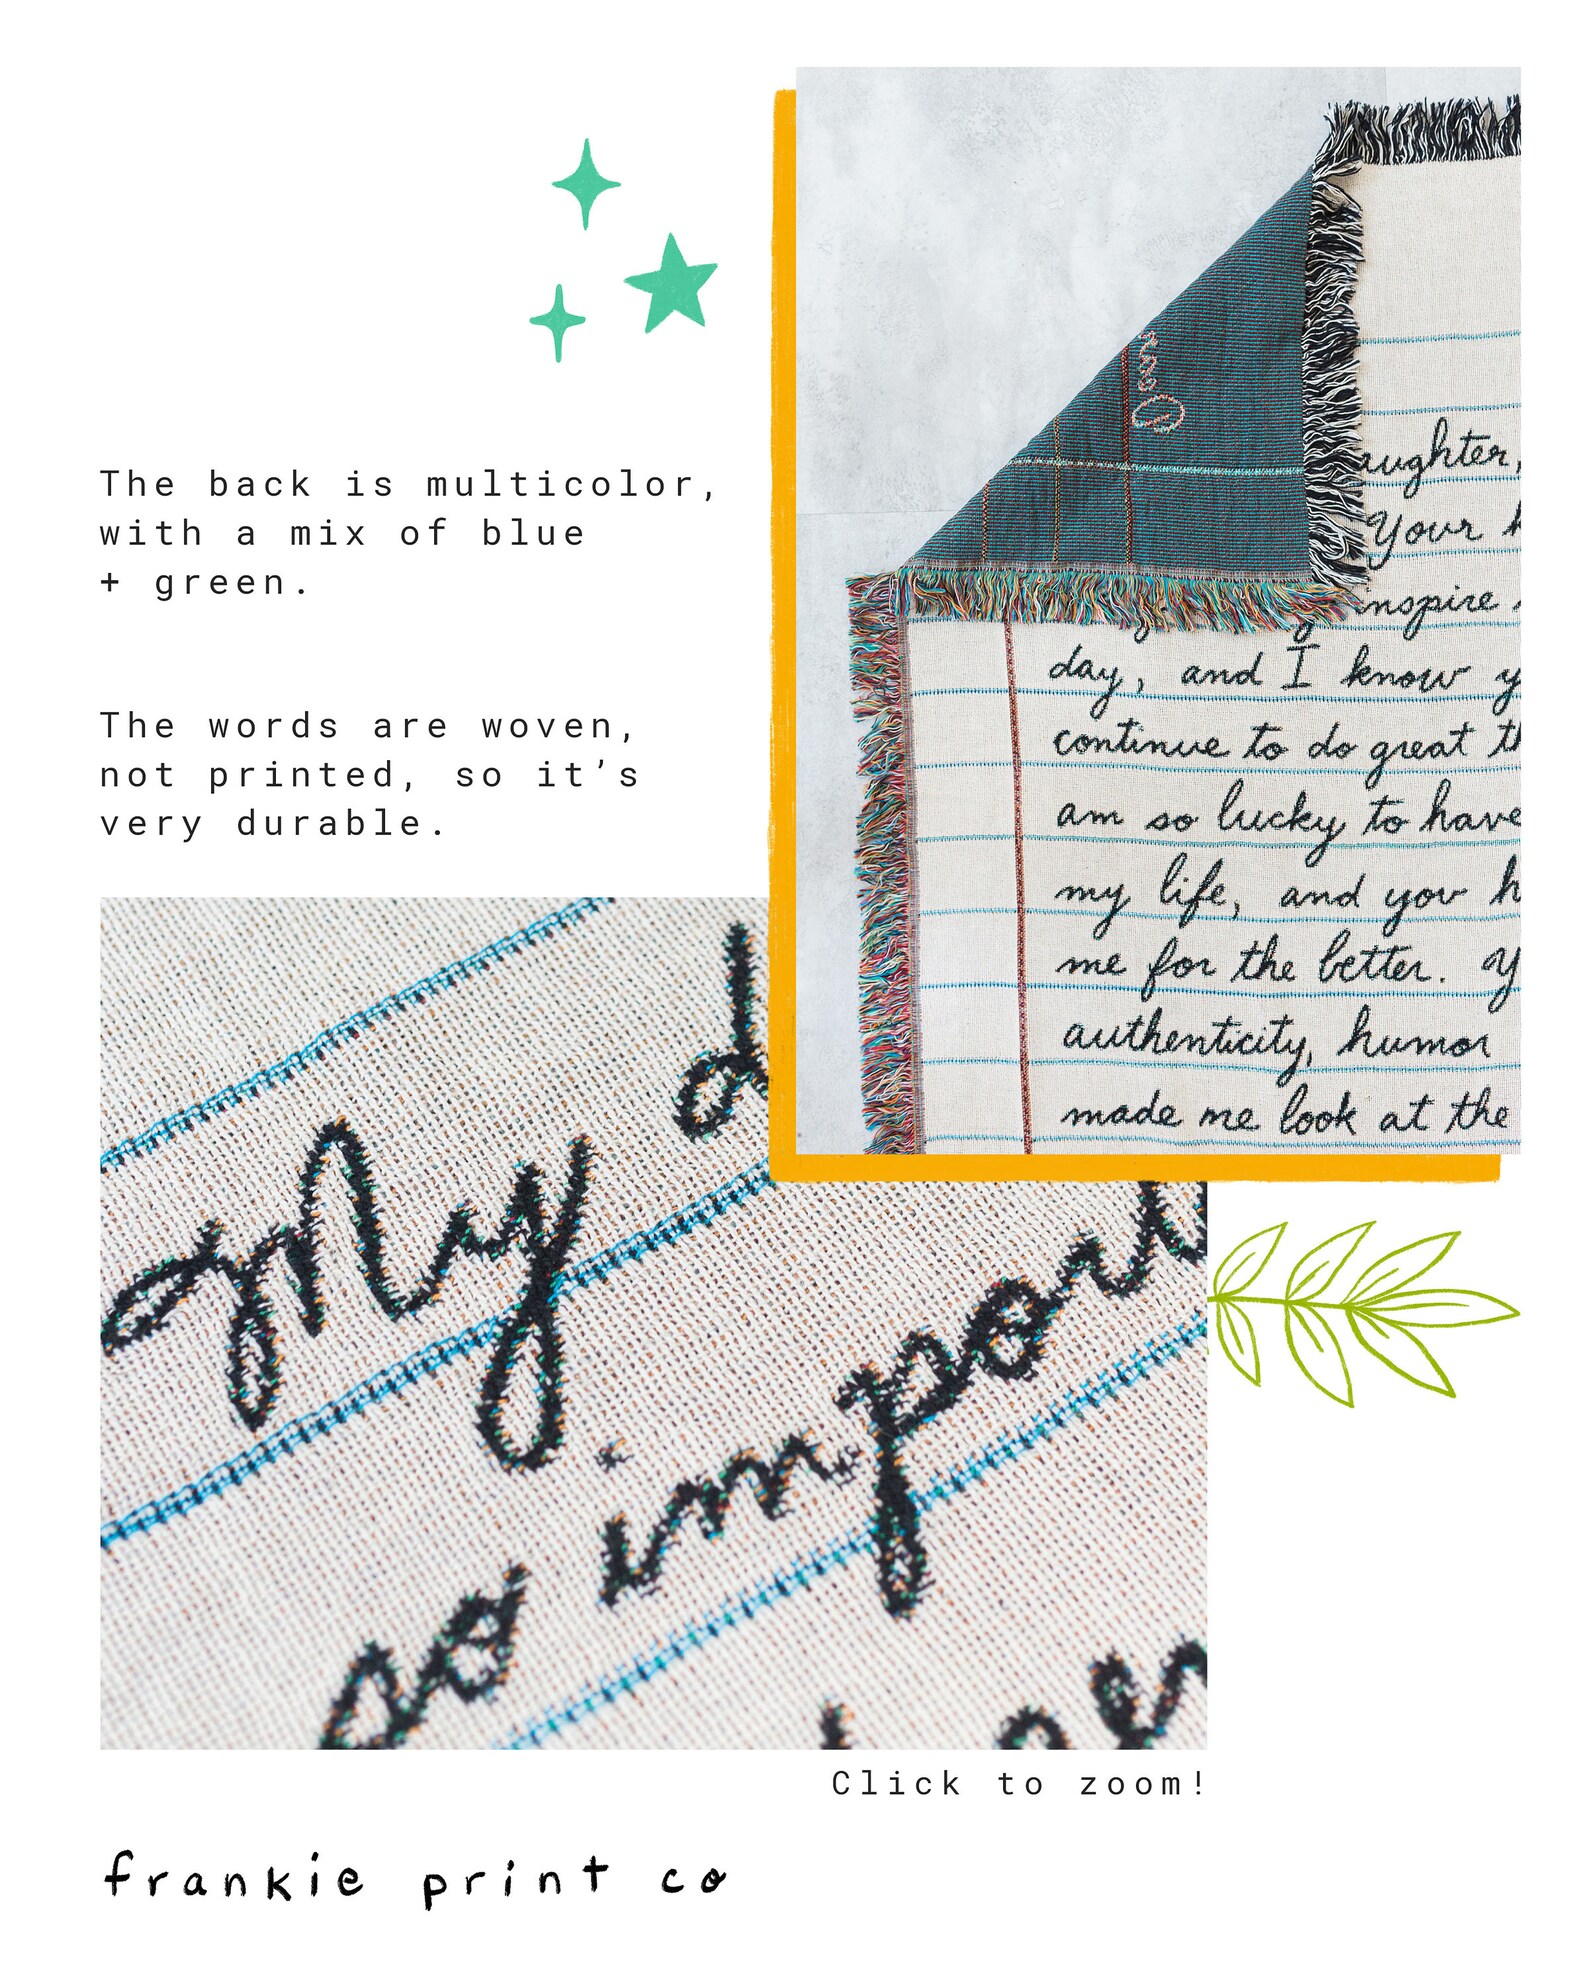 The back is multicolor,
with a mix of blue
+ green.
The words are woven,
not printed, so it's
very durable.
aughter,
Your h
inspire
day, and I know y
continue to do great th
am so lucky to have
my life, and you h
me for the better. Y
authenticity, humor
made me look at the
My d
so impor
Click to zoom!
frankie print co